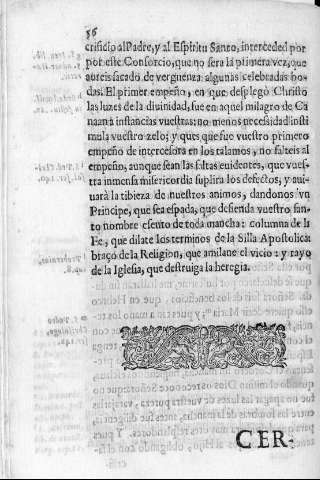 86
crificio al Padre, y al Espiritu Santo, interceded por
por este Consorcio, que no sera la primera vez, que
aureis sacado de verguenza algunas celebradas bo-
das. El primer empeño, en que desplegò Christo
las luzes de la diuinidad, fue en aquel milagro de Ca
naan à instancias vuestras: no menos necessidad insti
mula vuestro zelo; y pues que fue vuestro primero
empeño de intercessora en los talamos, no falteis al
empeño, aunque sean las faltas euidentes, que vues-
tra inmensa misericordia suplirà los defectos, y aui-
uarà la tibieza de nuestros animos, dandonos vn
Principe, que sea espada, que defienda vuestro san-
to nombre esento de toda mancha: columna de la
Fe, que dilate los terminos de la Silla Apostolica:
braço de la Religion, que amilane el vicio: y rayo
de la Iglesia, que destruiga la heregia.
CER-